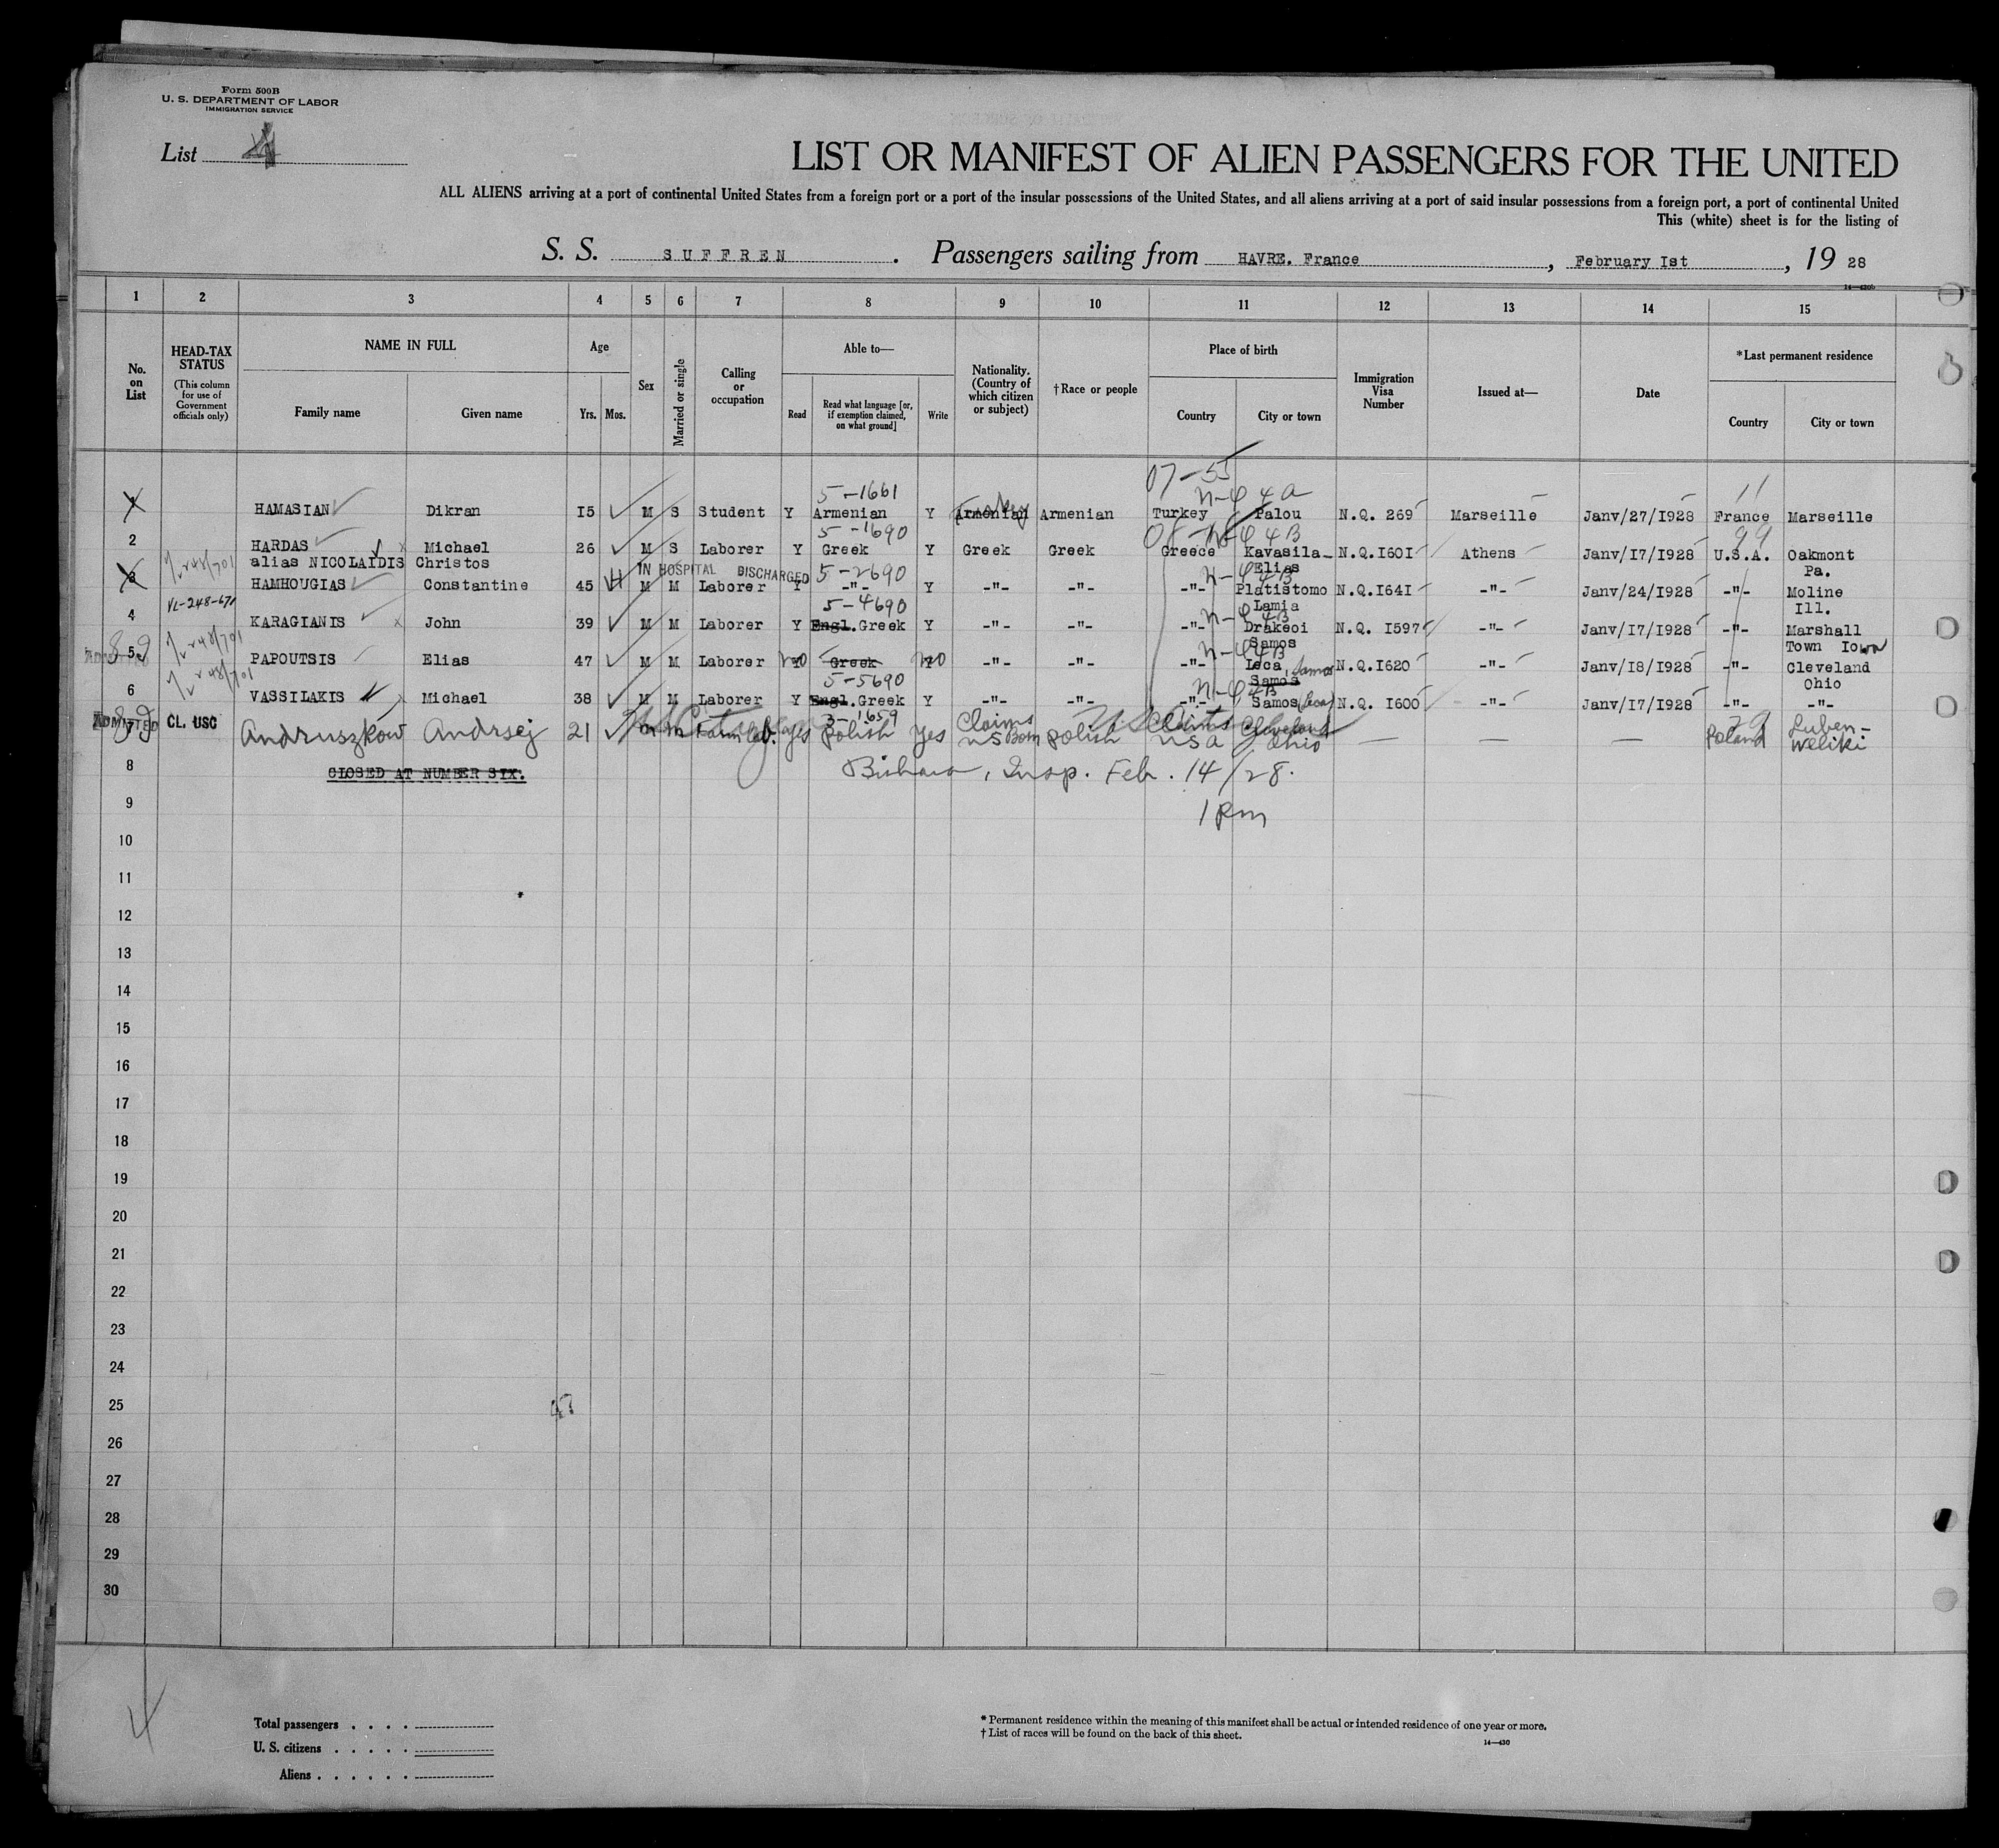 Form 500B
U. S. DEPARTMENT OF LABOR
IMMIGRATION SERVICE
List 4
LIST OR MANIFEST OF ALIEN PASSENGERS FOR THE UNITED
ALL ALIENS arriving at a port of continental United States from a foreign port or a port of the insular possessions of the United States, and all aliens arriving at a port of said insular possessions from a foreign port, a port of continental United
This (white) sheet is for the listing of
S. S. SUFFREN . Passengers sailing from HAVRE. France , February Ist , 19 28
1 2 3 4 5 6 7 8 9 10 11 12 13 14 15
No. on List
HEAD-TAX STATUS (This column for use of Government officials only)
NAME IN FULL
Family name Given name
Age
Yrs. Mos.
Sex
Married or single
Calling or occupation
Able to—
Read Read what language [or, if exemption claimed, on what ground] Write
Nationality. (Country of which citizen or subject)
†Race or people
Place of birth
Country City or town
Immigration Visa Number
Issued at—
Date
*Last permanent residence
Country City or town
07-55
5-1661 11
1 HAMASIAN Dikran I5 M S Student Y Armenian Y Armenian Armenian Turkey Palou N.Q. 269 Marseille Janv/27/I928 France Marseille
5-1690 99
2 HARDAS Michael 26 M S Laborer Y Greek Y Greek Greek Greece Kavasila- N.Q.I60I Athens Janv/I7/I928 U.S.A. Oakmont
alias NICOLAIDIS Christos IN HOSPITAL DISCHARGED 5-2690 Elias Pa.
3 HAMHOUGIAS Constantine 45 M M Laborer Y -"- Y -"- -"- -"- Platistomo N.Q.I64I -"- Janv/24/I928 -"- Moline
VL-248-671 5-4690 Lamia Ill.
4 KARAGIANIS John 39 M M Laborer Y Engl.Greek Y -"- -"- -"- Drakeoi N.Q. I597 -"- Janv/I7/I928 -"- Marshall
Samos Town Iowa
ADMITTED 5 PAPOUTSIS Elias 47 M M Laborer no Greek no -"- -"- -"- Leca Samos N.Q.I620 -"- Janv/I8/I928 -"- Cleveland
5-5690 Samos Ohio
6 VASSILAKIS Michael 38 M M Laborer Y Engl.Greek Y -"- -"- -"- Samos (Leca) N.Q. I600 -"- Janv/I7/I928 -"- -"-
3-1659
ADMITTED CL. USC Andruszkow Andrsej 21 m m Farm lab. yes polish yes Claims US Born polish Claims USA Cleveland Ohio — — — Poland Luben-
Weliki
8 CLOSED AT NUMBER SIX. Insp. Feb. 14/28.
9 1 Pm
10
11
12
13
14
15
16
17
18
19
20
21
22
23
24
25
26
27
28
29
30
4
Total passengers . . . .
U. S. citizens . . . . .
Aliens . . . . . .
* Permanent residence within the meaning of this manifest shall be actual or intended residence of one year or more.
† List of races will be found on the back of this sheet.
14—430